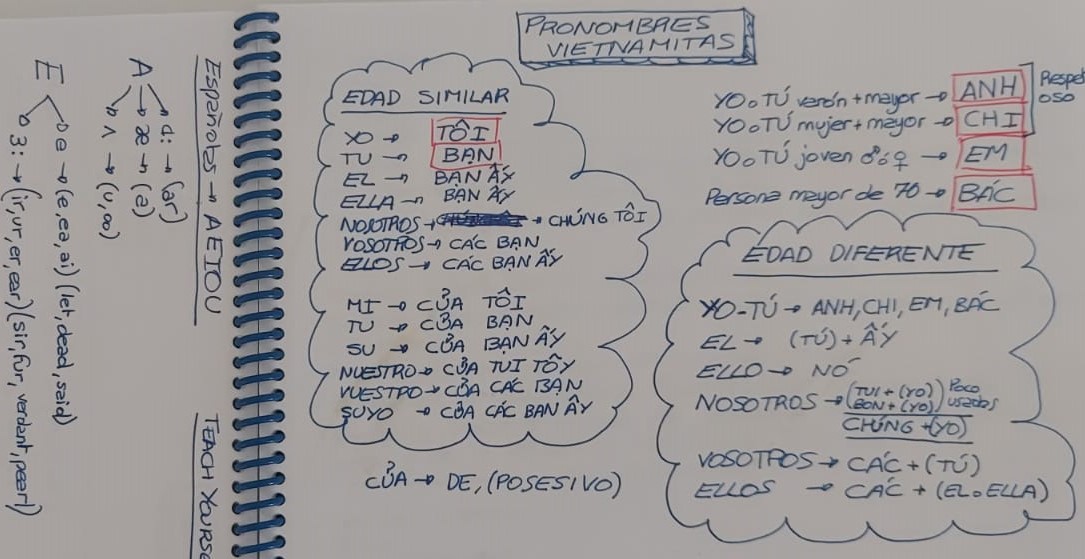 Españoles → AEIOU
A → ɑ: → (ar)
→ æ → (a)
→ ʌ → (u, oo)
E → e → (e, ea, ai) (let, dead, said)
→ 3: → (ir, ur, er, ear) (sir, fur, verdant, pearl)
TEACH YOURSE
PRONOMBRES
VIETNAMITAS
EDAD SIMILAR
YO → TÔI
TU → BẠN
EL → BẠN ẤY
ELLA → BẠN ẤY
NOSOTROS → → CHÚNG TÔI
VOSOTROS → CÁC BẠN
ELLOS → CÁC BẠN ẤY
MI → CỦA TÔI
TU → CỦA BẠN
SU → CỦA BẠN ẤY
NUESTRO → CỦA TUI TÔY
VUESTRO → CỦA CÁC BẠN
SUYO → CỦA CÁC BẠN ẤY
CỦA → DE, (POSESIVO)
YO o TÚ varón + mayor → ANH
YO o TÚ mujer + mayor → CHI
Respetoso
YO o TÚ joven ♂ ó ♀ → EM
Persona mayor de 70 → BÁC
EDAD DIFERENTE
YO-TÚ → ANH, CHI, EM, BÁC
EL → (TÚ) + ẤY
ELLO → NÓ
NOSOTROS → (TUI + (YO)
BON + (YO)) Poco usados
CHÚNG + (YO)
VOSOTROS → CÁC + (TÚ)
ELLOS → CÁC + (EL o ELLA)